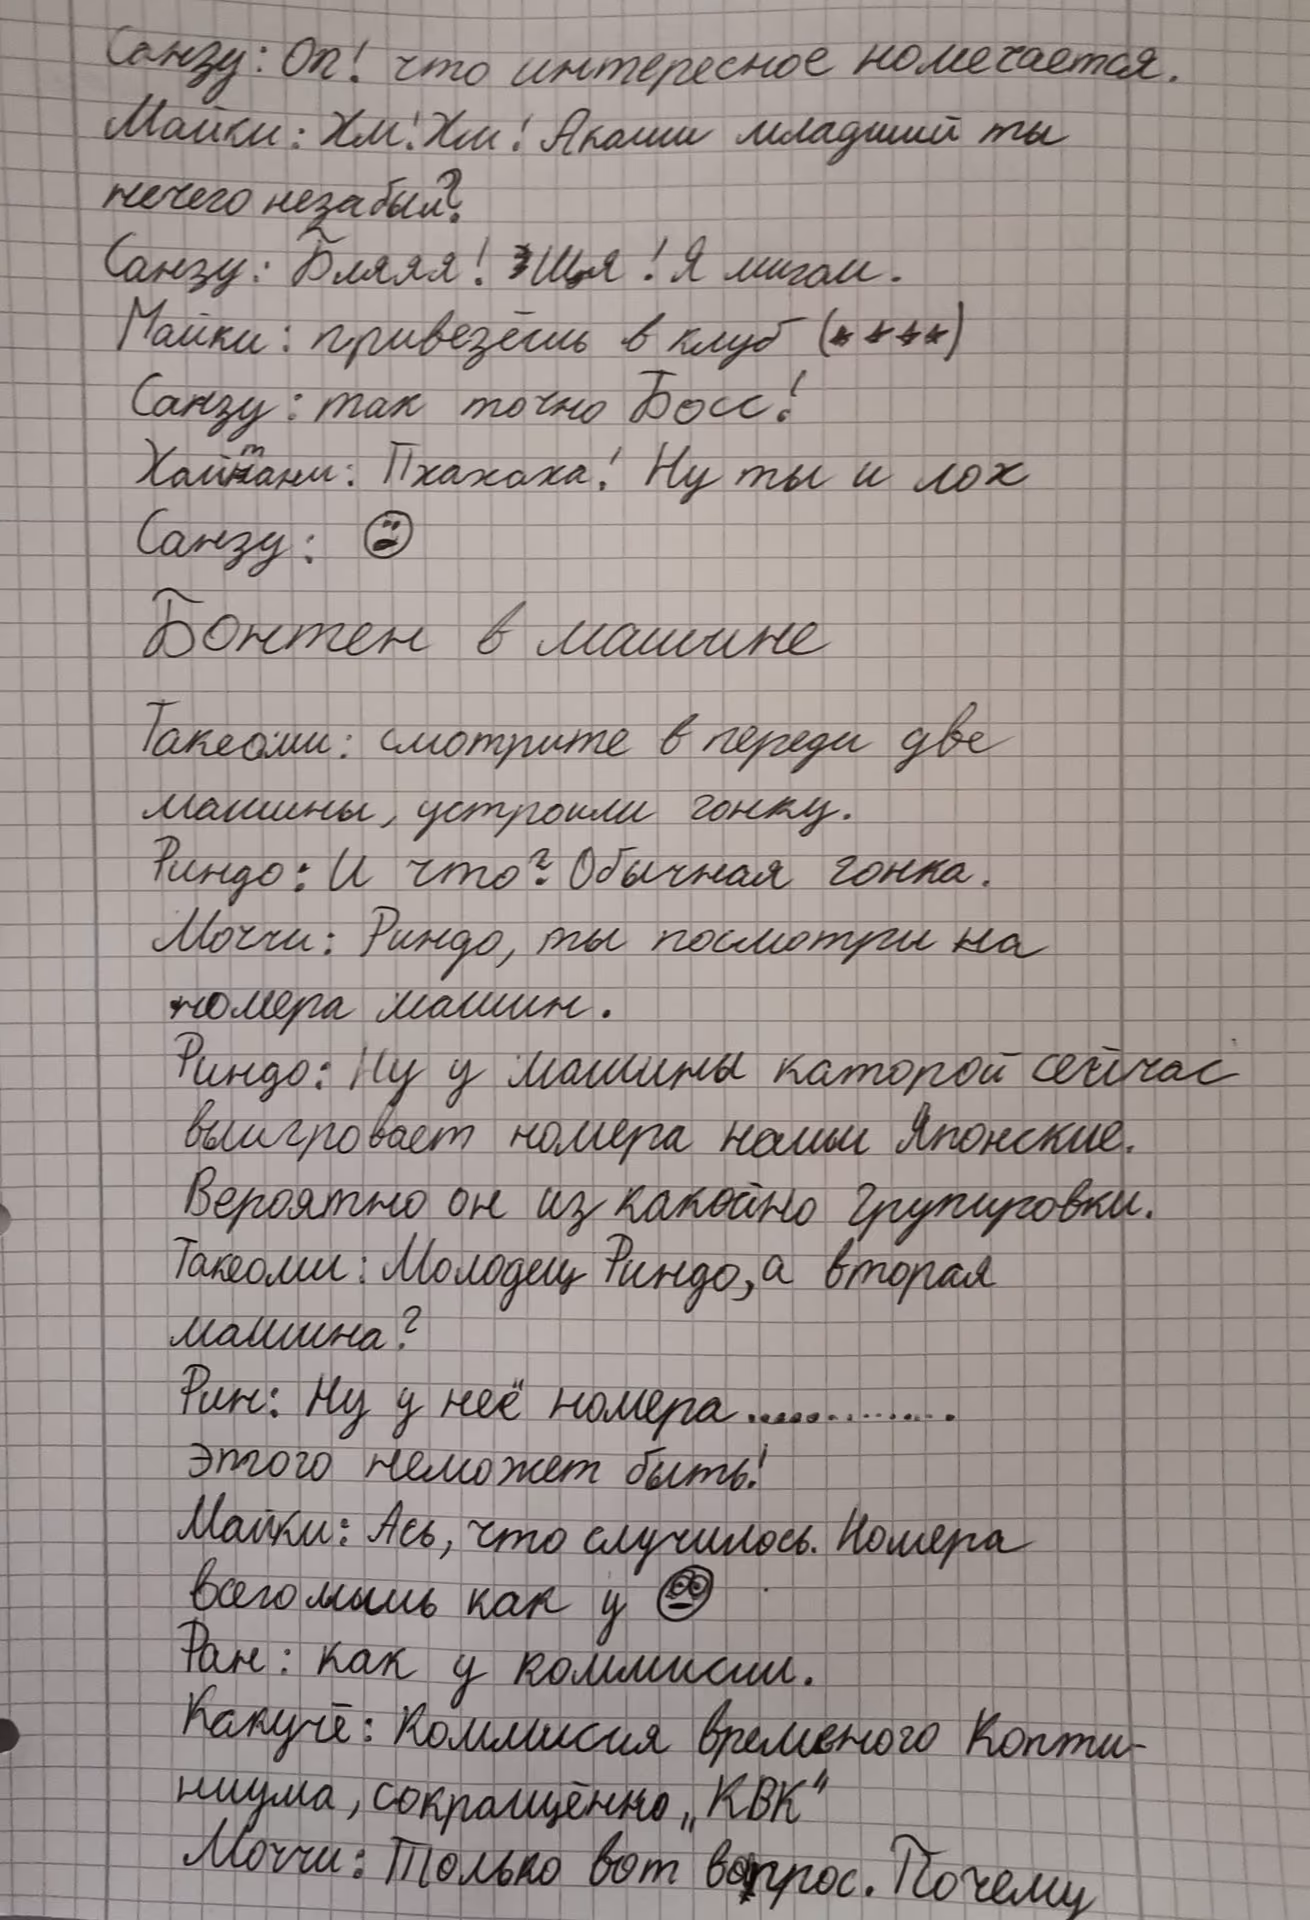 Санзу: Оп! что интересное номечается.
Майки: Хм! Хм! Акаши младший ты
нечего незабыл?
Санзу: Бляяя! Щя! Я мигом.
Майки: привезёшь в клуб (****)
Санзу: так точно Босс!
Хайтани: Пхахаха! Ну ты и лох
Санзу:
Бонтен в машине
Такеоми: смотрите в переди две
машины, устроили гонку.
Риндо: И что? Обычная гонка.
Моччи: Риндо, ты посмотри на
номера машин.
Риндо: Ну у машины каторой сейчас
выигровает номера наши Японские.
Вероятно он из какойно групировки.
Такеоми: Молодец Риндо, а вторая
машина?
Рин: Ну у неё номера...............
этого неможет быть!
Майки: Ась, что случилось. Номера
всего мышь как у
Ран: как у коммисии.
Какучё: Коммисия временого Конти-
ниума, сокращённо „КВК“
Моччи: Только вот вопрос. Почему